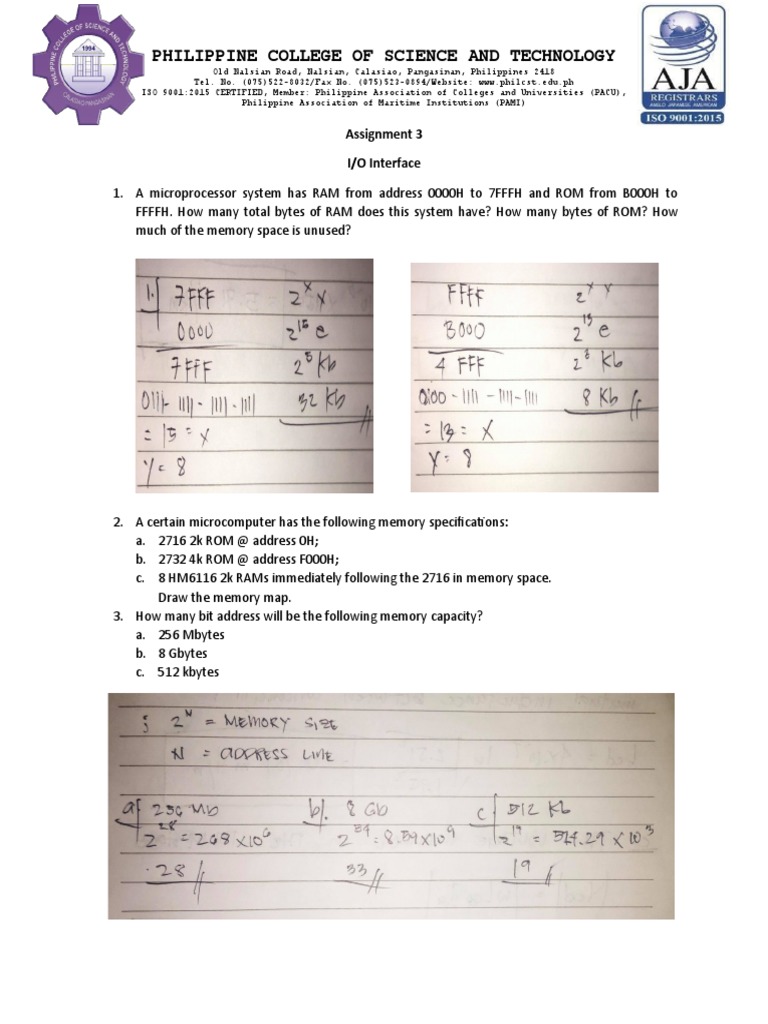 PHILIPPINE COLLEGE OF SCIENCE AND TECHNOLOGY
1994
Old Nalsian Road, Nalsian, Calasiao, Pangasinan, Philippines 2418
Tel. No. (075)522-8032/Fax No. (075)523-0894/Website: www.philcst.edu.ph
ISO 9001:2015 CERTIFIED, Member: Philippine Association of Colleges and Universities (PACU),
Philippine Association of Maritime Institutions (PAMI)
AJA
REGISTRARS
ANGLO JAPANESE AMERICAN
ISO 9001:2015
Assignment 3
I/O Interface
1. A microprocessor system has RAM from address 0000H to 7FFFH and ROM from B000H to
FFFFH. How many total bytes of RAM does this system have? How many bytes of ROM? How
much of the memory space is unused?
1. 7FFF 2^x y
0000 2^15 e
7FFF 2^5 Kb
0111- 1111 - 1111 - 1111 32 Kb
= 15 = x
y = 8
FFFF 2^x y
B000 2^13 e
4 FFF 2^8 Kb
0100 - 1111 - 1111 - 1111 8 Kb
= 13 = x
y = 8
2. A certain microcomputer has the following memory specifications:
a. 2716 2k ROM @ address 0H;
b. 2732 4k ROM @ address F000H;
c. 8 HM6116 2k RAMs immediately following the 2716 in memory space.
Draw the memory map.
3. How many bit address will be the following memory capacity?
a. 256 Mbytes
b. 8 Gbytes
c. 512 kbytes
; 2^N = MEMORY SIZE
N = ADDRESS LINE
a. 256 Mb b. 8 Gb c. 512 Kb
2^28 = 268 x10^6 = 8.59x10^9 2^19 = x 10^3
28 33 19